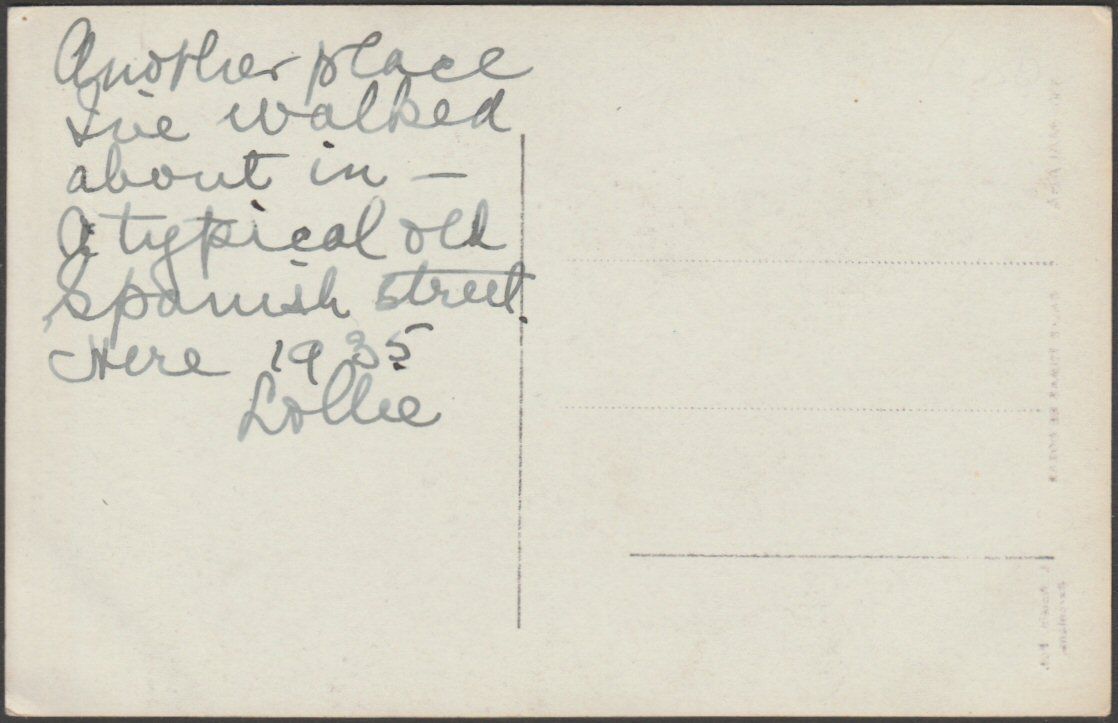 Another place
I've walked
about in —
A typical old
Spanish street.
Here 1935
Lollie